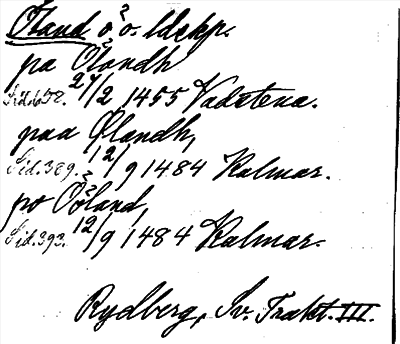 Öland ö o. ldskp.
pa Ölandh
Sid. 58. 24/2 1455 Vadstena.
paa Ølandh,
Sid. 389. 12/9 1484 Kalmar.
po Öland,
Sid. 393. 12/9 1484 Kalmar.
Rydberg, Sv. Trakt. III.